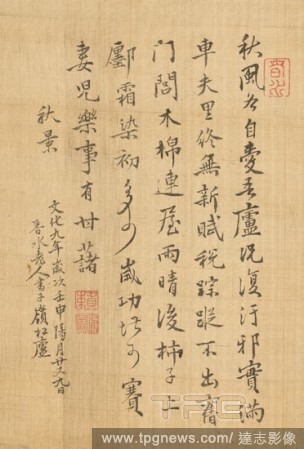 秋風自愛吾廬況復汙邪實滿
車夫里終無新賦稅蹤不出舊
門閭木棉連屋雨晴後柿子上
鄽霜染初多少歲功可賽
妻児樂事有甘藷
秋景
文化九年歲次壬申陽月廿又九日
春水老人書于嶺松廬
www.tpgnews.com/達志影像